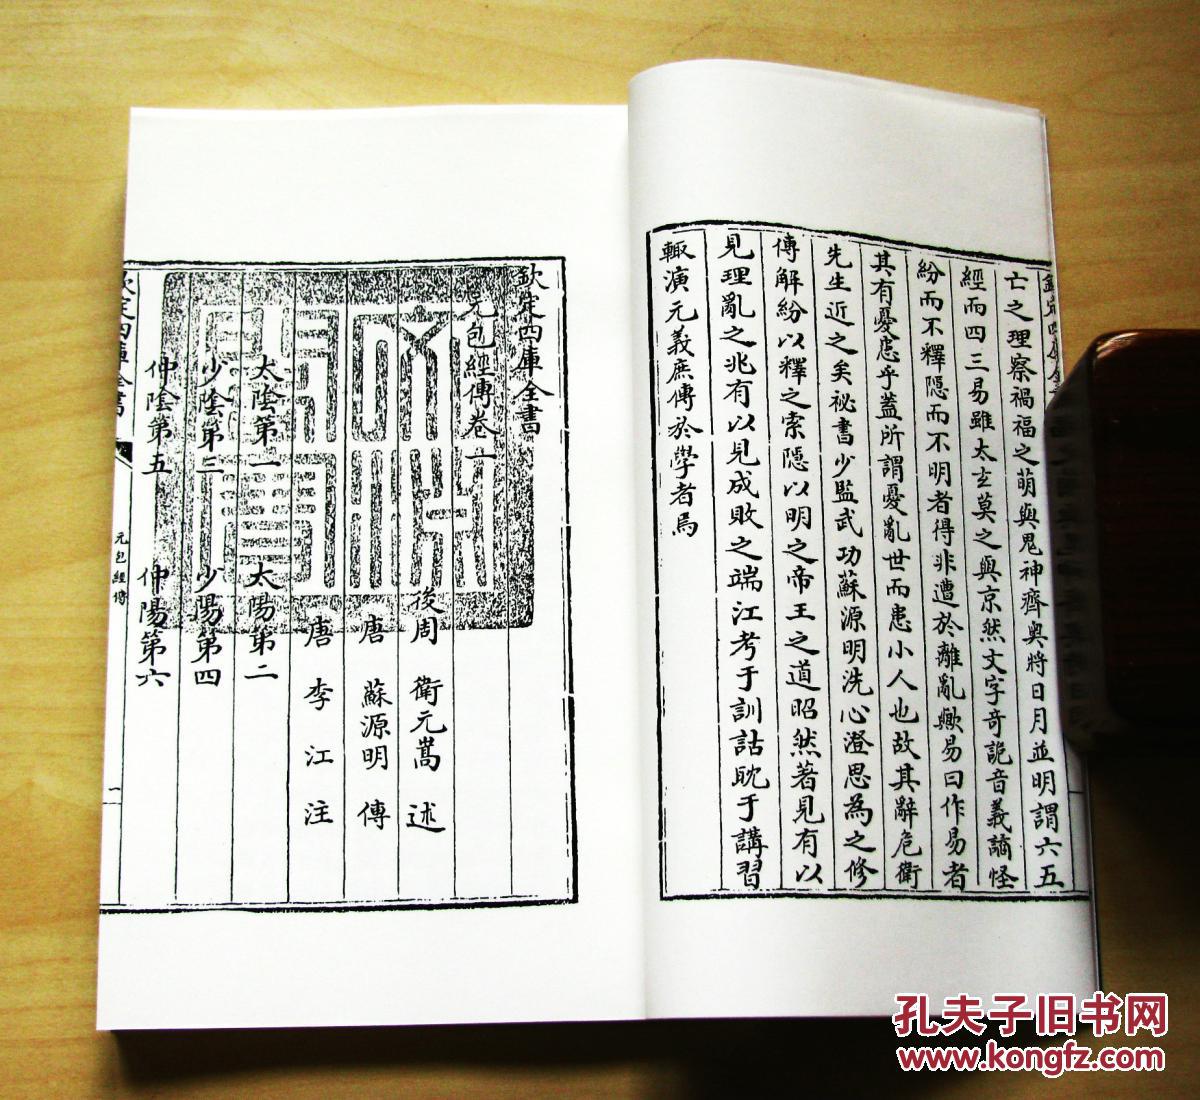 亡之理察禍福之萌與鬼神齊奥將日月並明謂六五
經而四三易雖太玄莫之與京然文字奇詭音義譎怪
紛而不釋隠而不明者得非遭於離亂歟易曰作易者
其有憂患乎蓋所謂憂亂世而患小人也故其辭危衛
先生近之矣祕書少監武功蘇源明洗心澄思為之修
傳解紛以釋之索隠以明之帝王之道昭然著見有以
見理亂之兆有以見成敗之端江考于訓詁耽于講習
輙演元義庶傳於學者焉
欽定四庫全書
元包經傳卷一
後周 衛元嵩 述
唐 蘇源明 傳
唐 李江 注
太陰第一 太陽第二
少陰第三 少陽第四
仲陰第五 仲陽第六
欽定四庫全書
元包經傳
一
孔夫子旧书网
www.kongfz.com